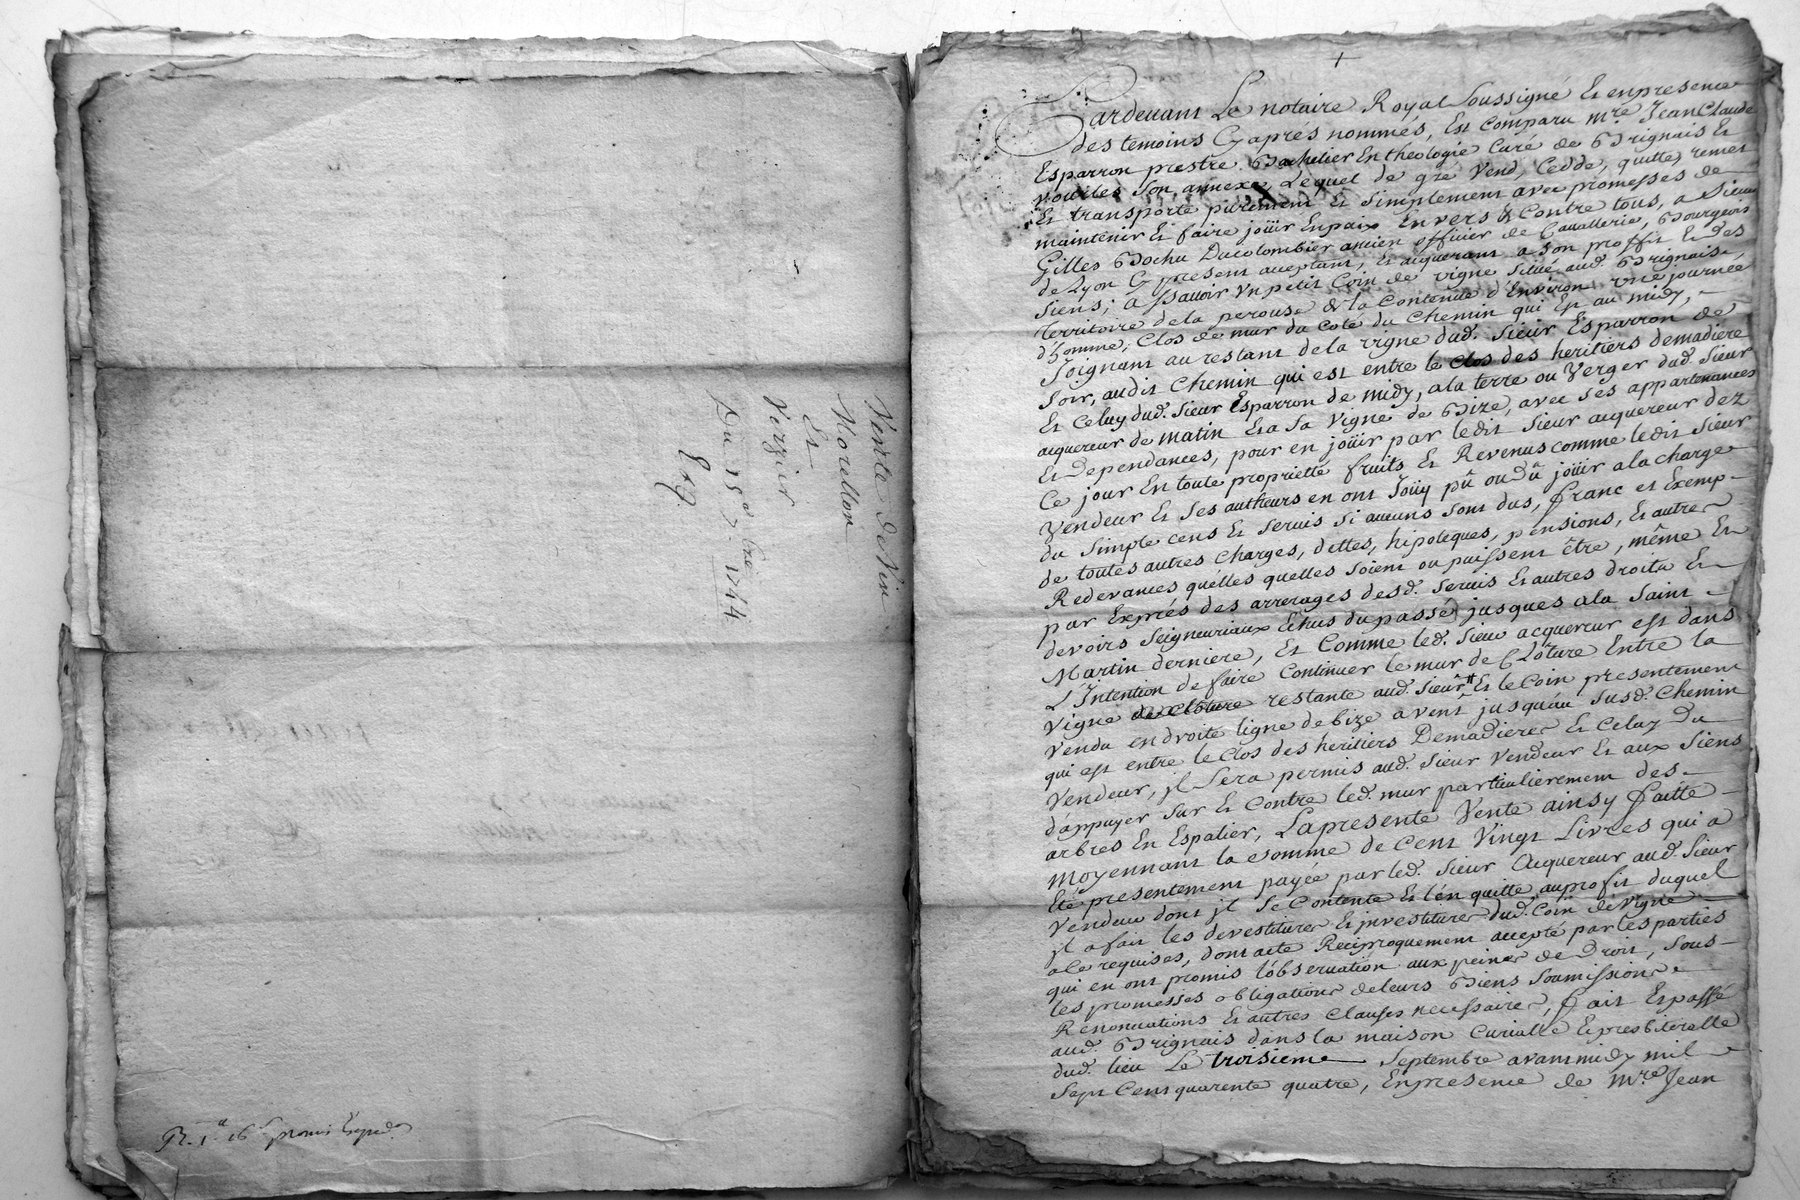 Vente de vin
Morellon
Et
Verzier
Du 15e 7bre 1744
Exp.
R. 1 16 promis Exped.
+
Pardevant Le notaire Royal Soussigné Et en presence
des temoins Cy apres nommés, Est Comparu mre Jean Claude
Esparron prestre Bachelier En theologie Curé de Brignais Et
vourles Son annexe, Lequel de gré Vend, Cedde, quitte, remet
Et transporte purement Et Simplement avec promesses de
maintenir Et faire joüir En paix Envers & Contre tous, a Sieur
Gilles Bochu Ducolombier ancien officier de Cavallerie, Bourgeois
de Lyon Cy present acceptant, Et acquerant a Son proffit Et des
Siens; a Sçavoir Un petit Coin de vigne Situé aud. Brignais,
Territoire de la perouse & la Contenue d'Environ une journée
d'homme, Clos de mur du Coté du Chemin qui Est au midy,
Joignant au restant de la vigne dud. Sieur Esparron de
Soir, audit Chemin qui est entre le Clos des heritiers demadiere
Et Celuy dud. Sieur Esparron de midy, a la terre ou Verger dud. Sieur
acquereur de matin Et a Sa Vigne de Bize, avec Ses appartenances
Et Dependances, pour en joüir par ledit Sieur acquereur dez
Ce jour En toute proprietté fruits Et Revenus comme ledit Sieur
Vendeur Et Ses autheurs en ont Joüy pû ou Dû joüir a la charge
du Simple cens Et Servis Si aucuns Sont dus, franc et Exemp
de toutes autres Charges, dettes, hipoteques, pensions, Et autres
Redevances quélles quelles Soient ou puissent être, même En
par Exprés des arrerages desd. Servis Et autres droits Et
devoirs Seigneuriaux Echus du passé jusques a la Saint
Martin derniere, Et Comme led. Sieur acquereur est dans
L'Intention de faire Continuer le mur de Clôture Entre la
Vigne de Clôture restante aud. Sieur Et le Coin presentement
Vendu en droite ligne de bize a vent jusqu'au Susd. Chemin
qui est entre le Clos des heritiers Demadiere Et Celuy du
Vendeur, jl Sera permis aud. Sieur Vendeur Et aux Siens
d'appuyer Sur Et Contre led. mur particulierement des
arbres En Espalier, La presente Vente ainsy faitte
Moyennant la Somme de Cent Vingt Livres qui a
Eté presentement payée par led. Sieur Acquereur aud. Sieur
Vendeur dont jl Se Contente Et l'en quitte au profit duquel
jl a fait les devestitures Et jnvestitures dud. Coin de Vigne
a le requises, dont acte Reciproquement accepté par les parties
qui en ont promis lobservation aux peines de Droit, Sous
les promesses obligations de leurs Biens Soumissions
Renonciations Et autres Clauses necessaires, fait Et passé
aud. Brignais dans la maison Curialle Et presbiteralle
dud. lieu Le troisieme Septembre avant midy mil
Sept Cent quarente quatre, En presence de Mre Jean